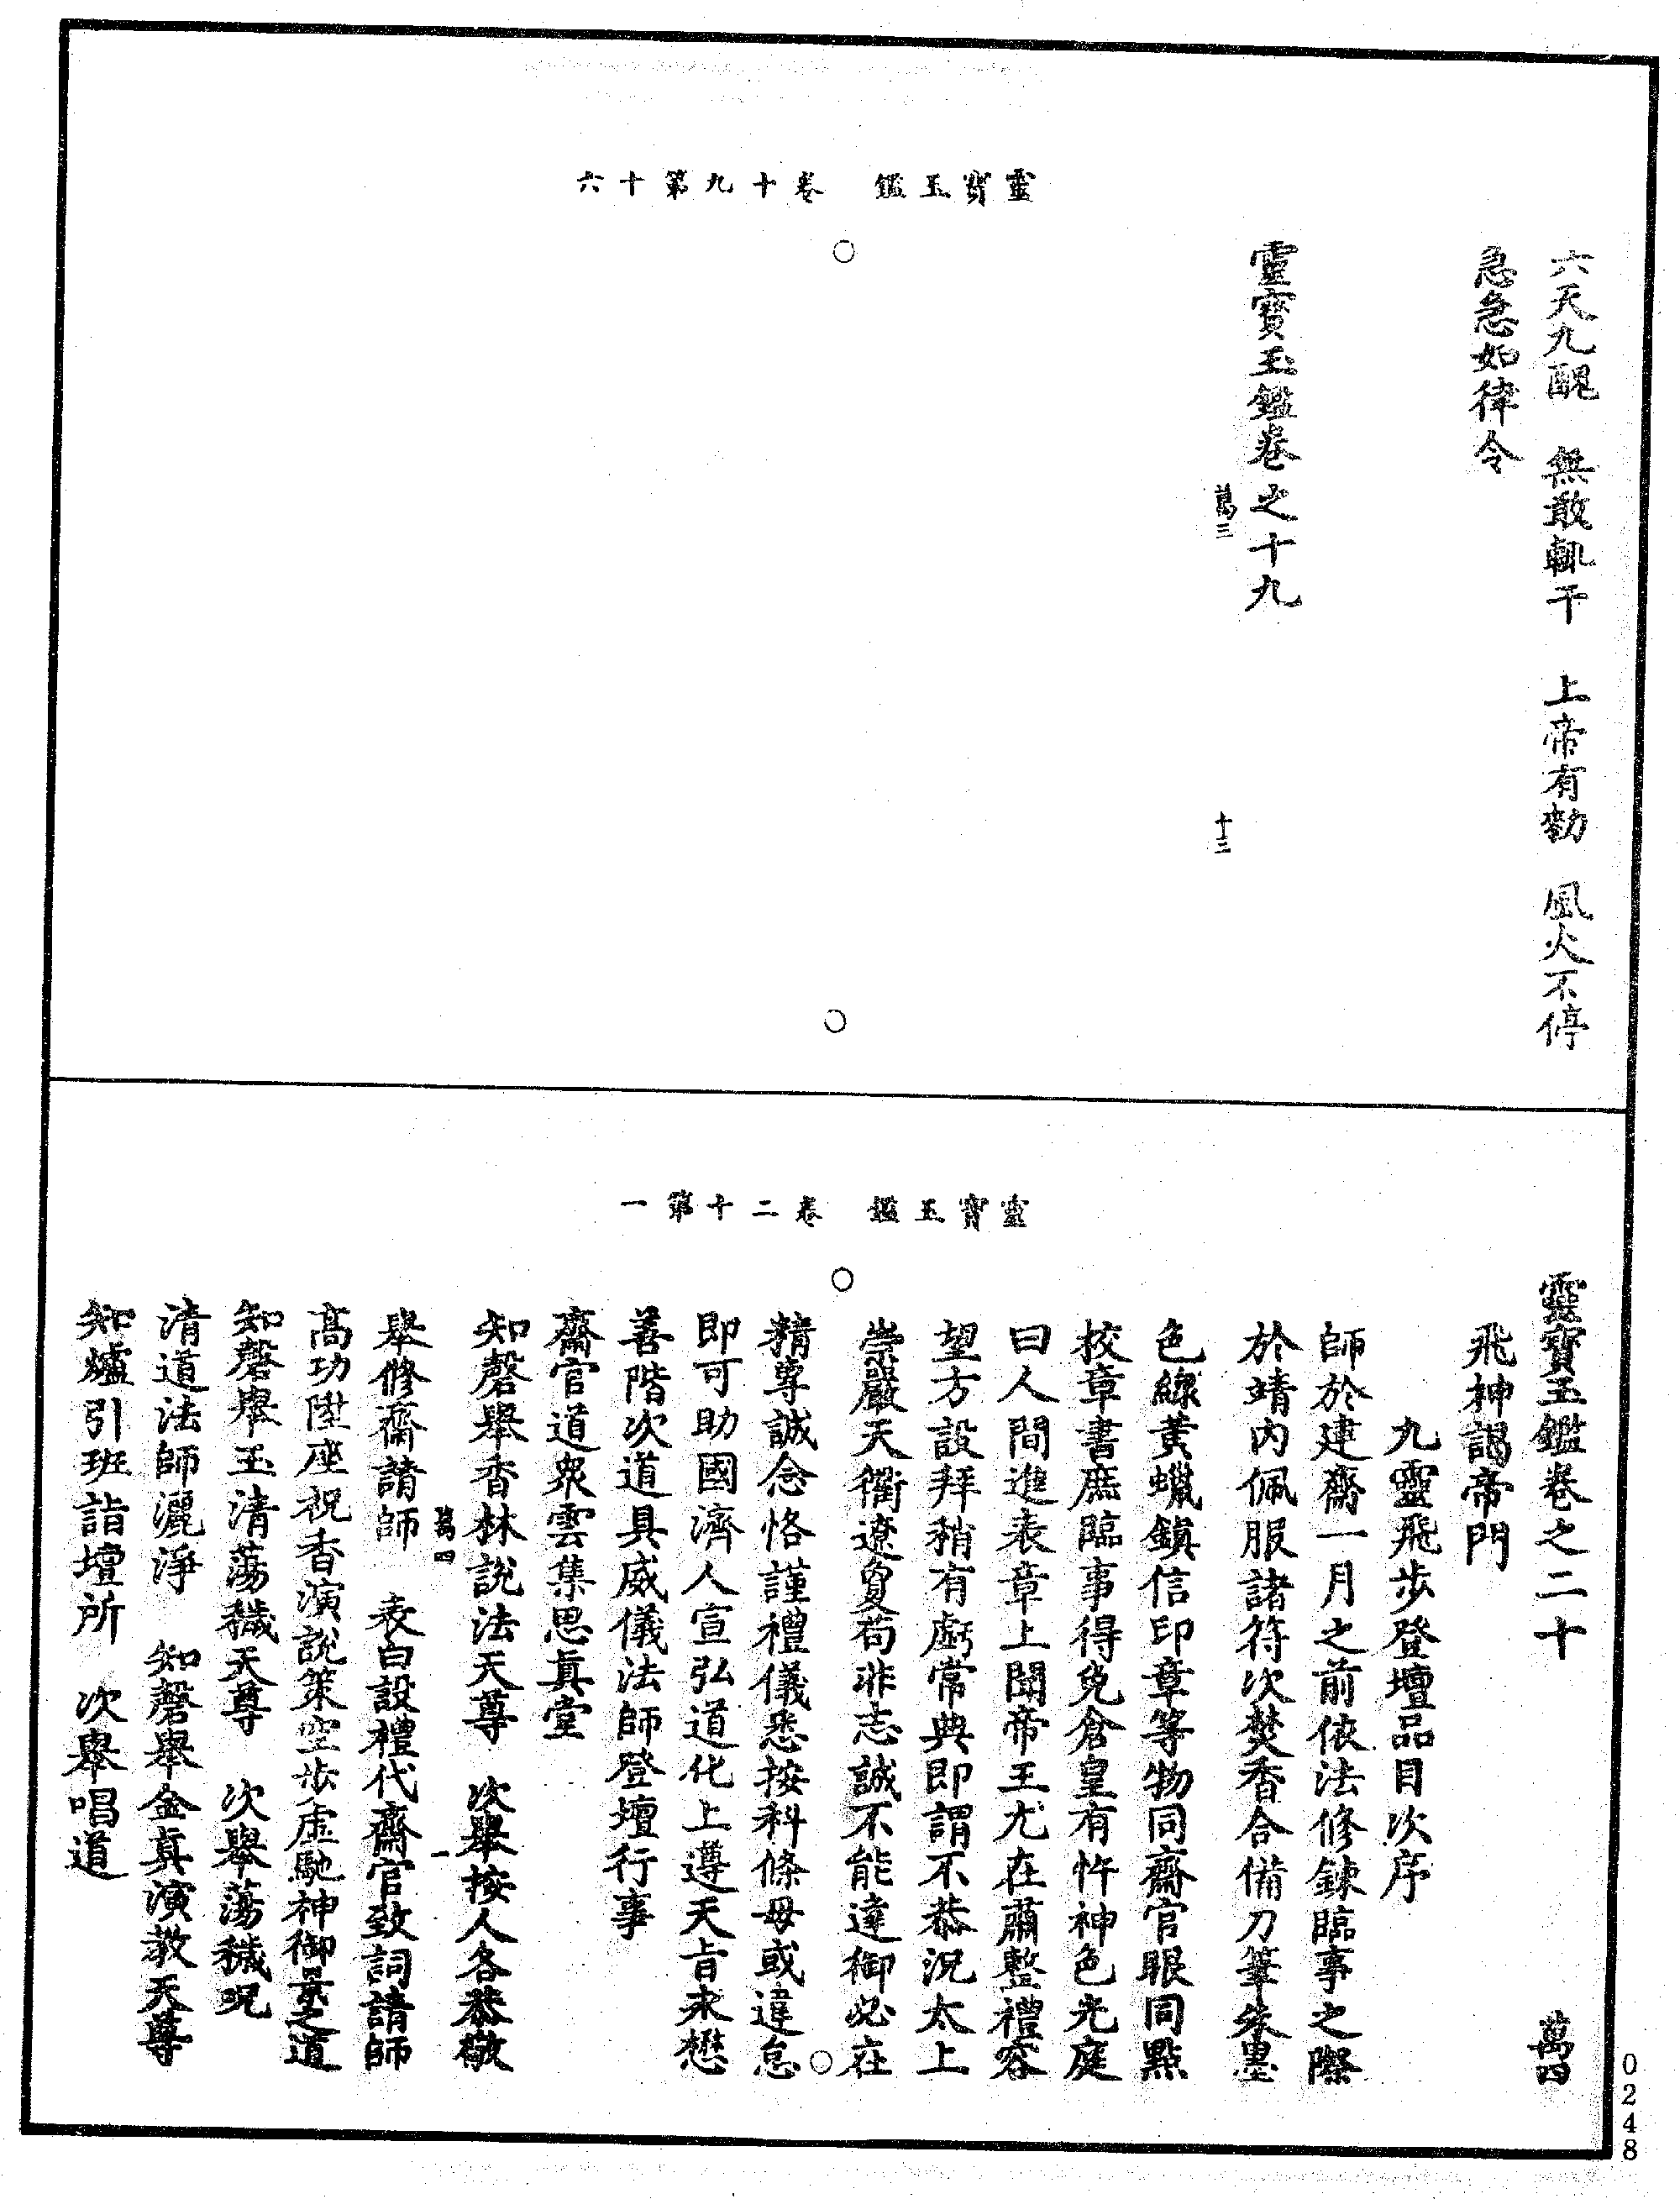 靈寶玉鑑　卷十九第十六
六天九醜　無敢輒干　上帝有勑　風火不停
急急如律令
靈寶玉鑑卷之十九
萬三　十三
靈寶玉鑑　卷二十第一
靈寶玉鑑卷之二十　萬四
飛神謁帝門
九靈飛步登壇品目次序
師於建齋一月之前依法修鍊臨事之際
於靖內佩服諸符次焚香合備刀筆朱墨
色線黃蠟鎮信印章等物同齋官眼同點
校章書庶臨事得免倉皇有忤神色光庭
曰人間進表章上聞帝王尤在肅整禮容
望方設拜稍有虧常典即謂不恭況太上
崇嚴天衢遼敻苟非志誠不能達御必在
精專誠念恪謹禮儀悉按科條毋或違怠
即可助國濟人宣弘道化上遵天旨永懋
善階次道具威儀法師登壇行事
齋官道眾雲集思真堂
知磬舉香林說法天尊　次舉按人各恭敬
萬四　一
舉修齋請師　表白設禮代齋官致詞請師
高功陞座祝香演說策空步虛馳神御景之道
知磬舉玉清蕩穢天尊　次舉蕩穢呪
清道法師灑淨　知磬舉金真演教天尊
知爐引班詣壇所　次舉唱道
0248